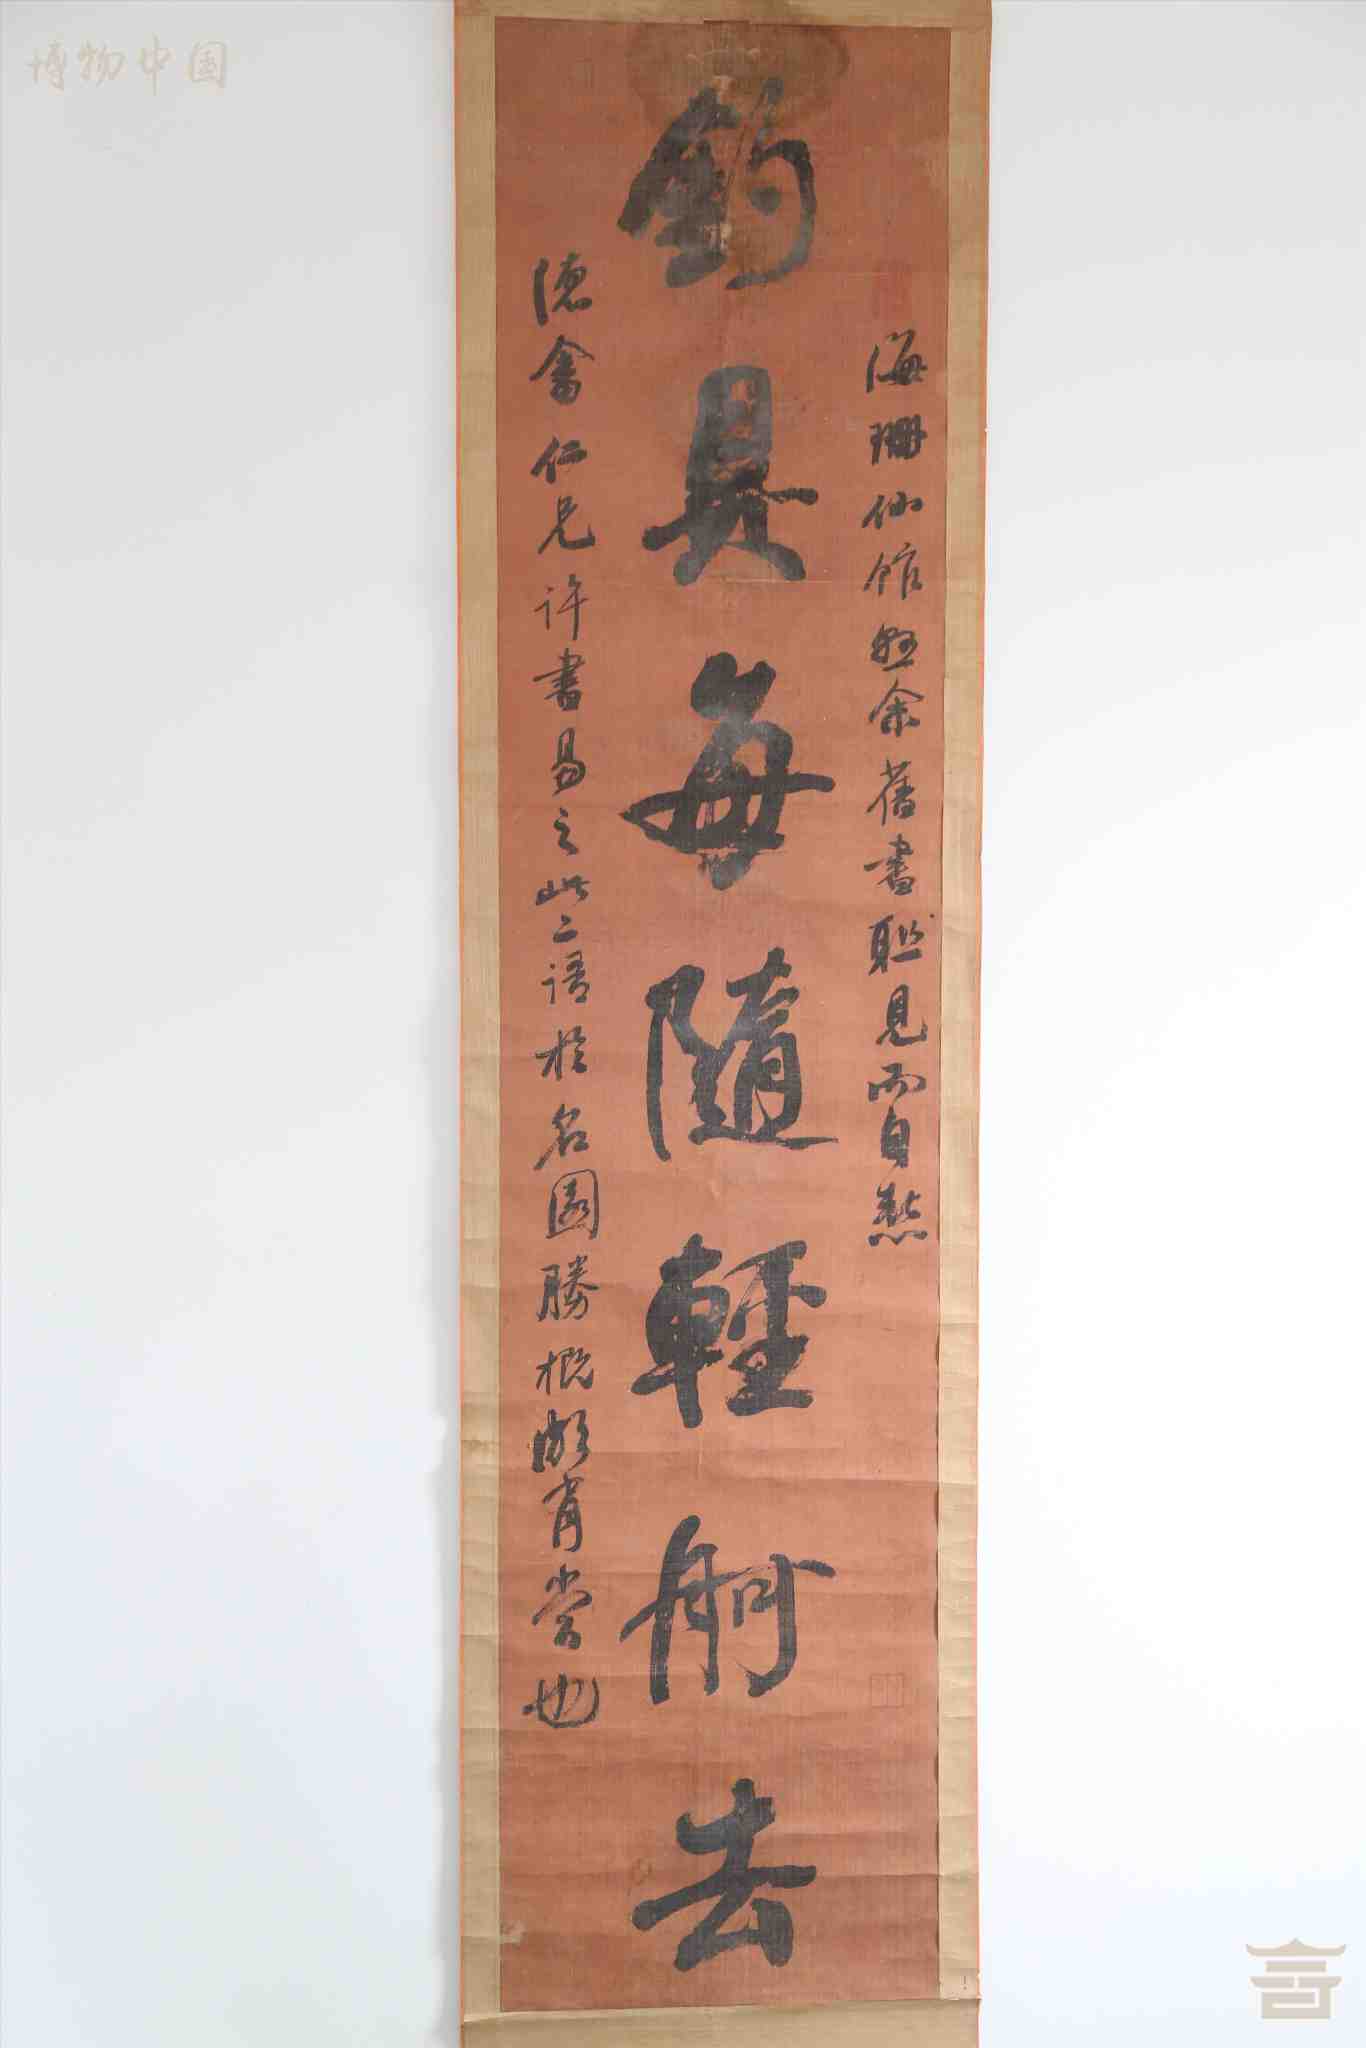 博物中国
海珊仙館懸余舊書聯見而自愁
釣具每隨輕舸去
德畬仁兄許書易之此二語於名園勝概頗肖當也